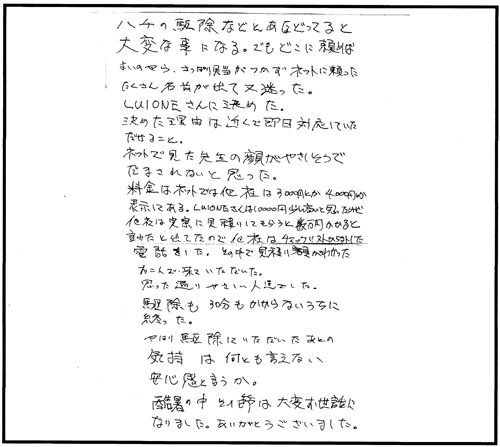 ハチの駆除などとあなどってると
大変な事になる。でもどこに頼めば
よいのやら、さっぱり見当がつかずネットに頼った
たくさん名前が出て又迷った。
LUIONEさんに決めた。
決めた理由は近くで即日対応していた
だけること。
ネットで見た先生の顔がやさしそうで
だまされないと思った。
料金はネットでは他社は3000円とか4000円が
表示してある。LUIONEさんは10000円
他社は実際に見積りしてもらうと数万円かかると
出てたので他社は
電話をした。その中で見積り額がわかった
お二人で来ていただいた。
思った通りやさしい人達でした。
駆除も30分もかからないうちに
終った。
やはり駆除していただいたあとの
気持は何とも言えない
安心感と言うか。
酷暑の中は大変お世話に
なりました。ありがとうございました。